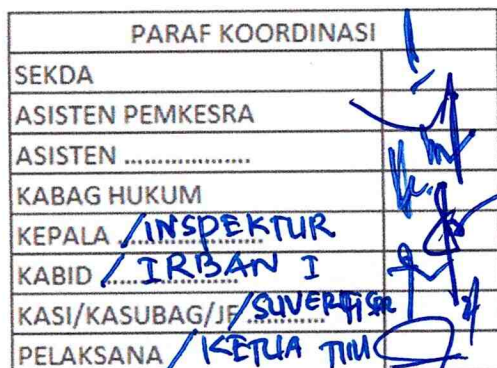 PARAF KOORDINASI
SEKDA
ASISTEN PEMKESRA
ASISTEN ...................
KABAG HUKUM
KEPALA /INSPEKTUR
KABID / IRBAN I
KASI/KASUBAG/JF/SUVERFISOR
PELAKSANA / KETUA TIM